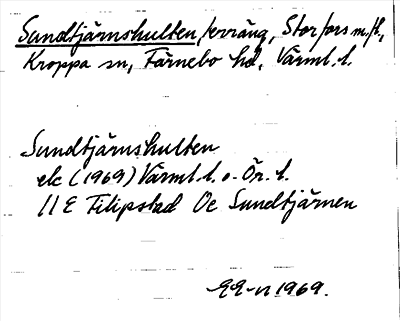 Sundtjärnshulten, terräng, Storfors m./k.,
Kroppa sn, Färnebo hd, Värml. l.
Sundtjärnshulten
ek (1969) Värml. l. o. Ör. l.
11 E Filipstad Oe Sundtjärnen
1969.